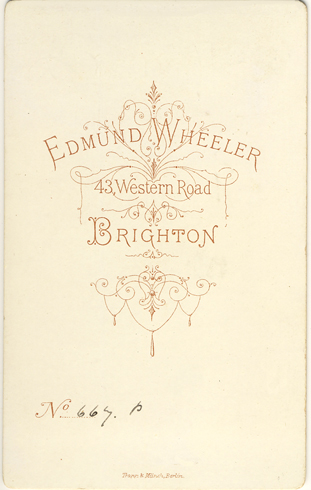 EDMUND WHEELER
43, Western Road
BRIGHTON
No 667. P
Berlin.